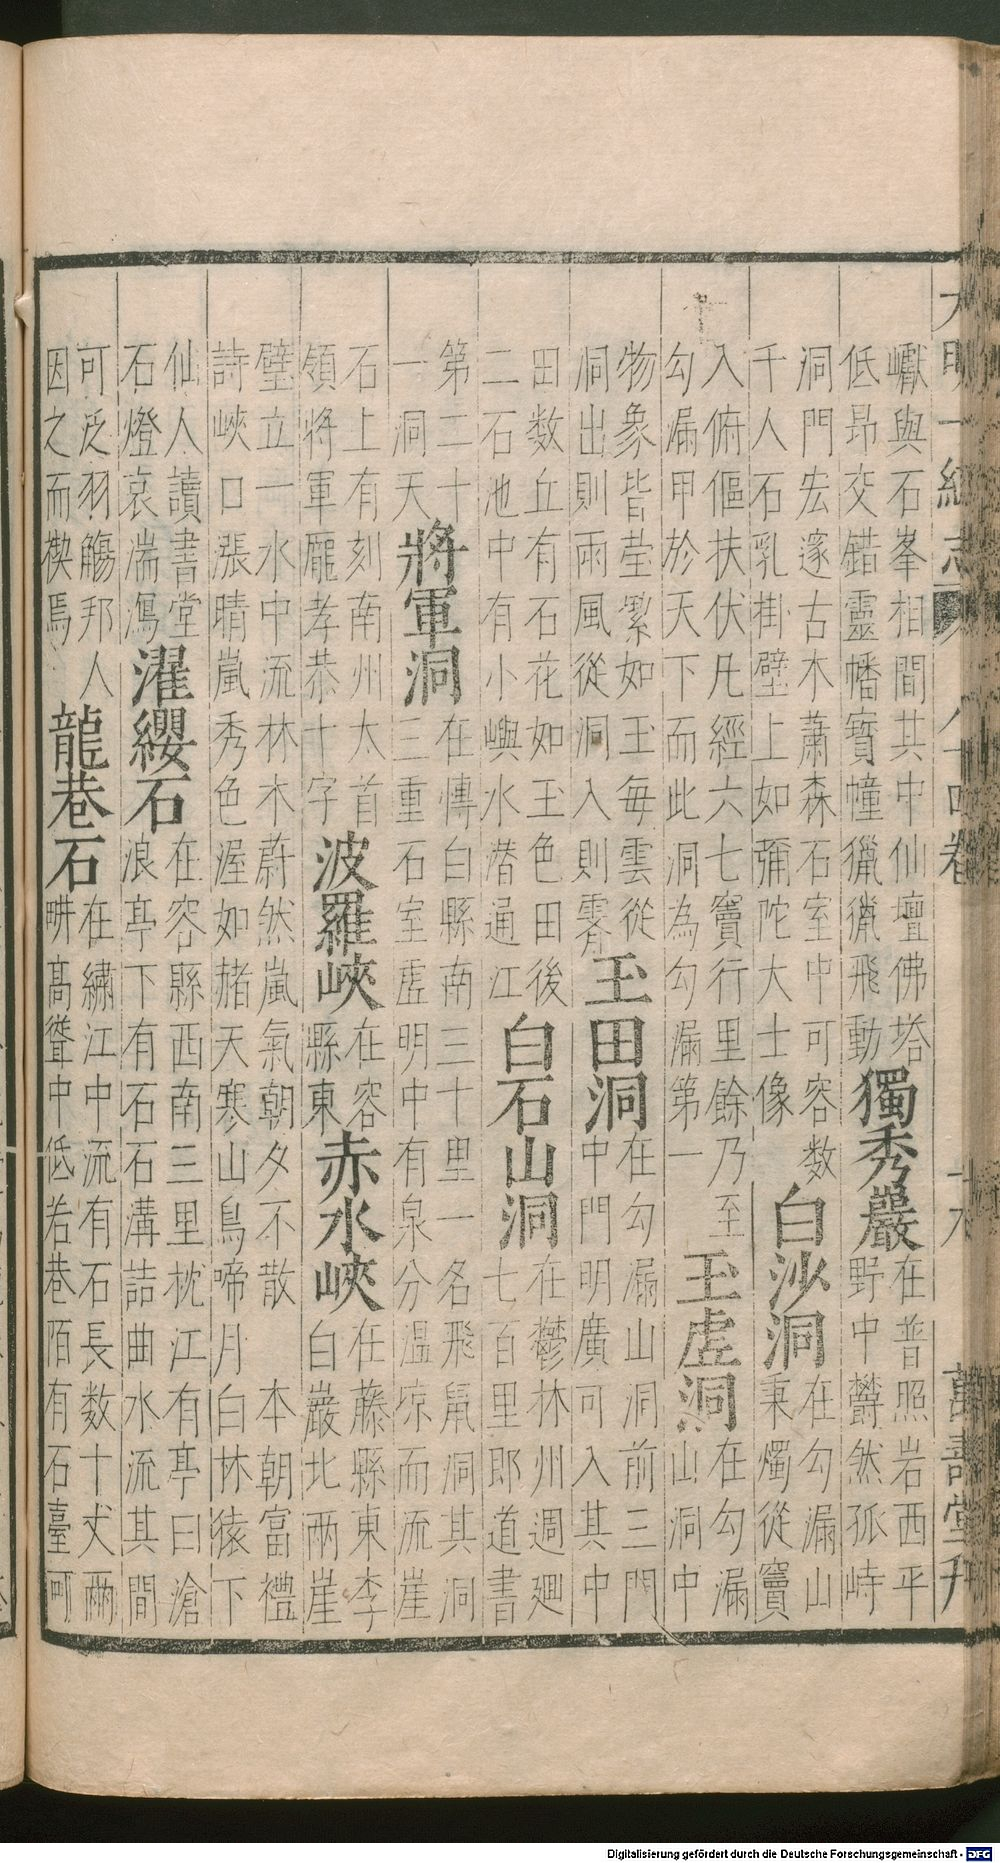 大明一統志 八十四卷 十六 萬壽堂刋
巘與石峯相間其中仙壇佛塔
低昻交錯靈幡寳幢獵獵飛動
獨秀巖
在普照岩西平
野中欝然孤峙
洞門宏邃古木蕭森石室中可容数
千人石乳掛壁上如彌陀大士像
白沙洞
在勾漏山
秉燭從竇
入俯傴扶伏凡經六七竇行里餘乃至
勾漏甲於天下而此洞為勾漏第一
玉虛洞
在勾漏
山洞中
物象皆瑩㓗如玉每雲從
洞出則雨風從洞入則霽
玉田洞
在勾漏山洞前三門
中門明廣可入其中
田数丘有石花如玉色田後
二石池中有小嶼水潜通江
白石山洞
在鬱林州週廻
七百里郎道書
第二十
一洞天
將軍洞
在慱白縣南三十里一名飛鼠洞其洞
三重石室虛明中有泉分温凉而流崖
石上有刻南州太首
領將軍龎孝恭十字
波羅峽
在容
縣東
赤水峽
在藤縣東李
白巖北兩崖
壁立一水中流林木蔚然嵐氣朝夕不散 本朝富禮
詩峽口漲晴嵐秀色渥如赭天寒山鳥啼月白林猿下
仙人讀書堂
石燈哀湍瀉
濯纓石
在容縣西南三里枕江有亭曰滄
浪亭下有石石溝詰曲水流其間
可泛羽觴邦人
因之而禊焉
龍巷石
在繡江中流有石長数十丈兩
畊髙聳中低若巷陌有石臺可
Digitalisierung gefördert durch die Deutsche Forschungsgemeinschaft - DFG